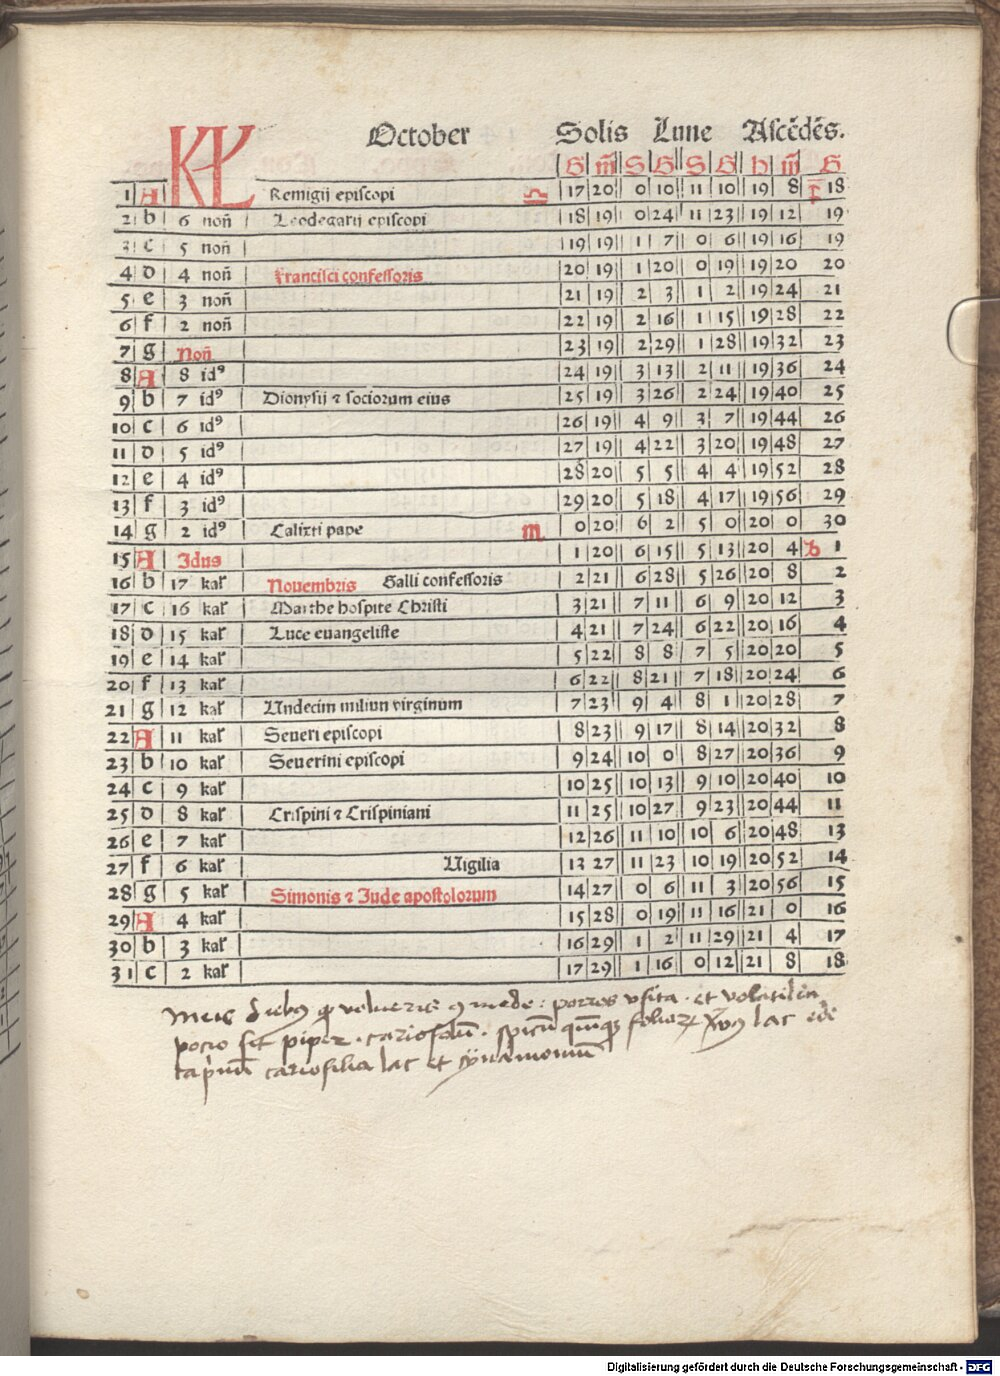 KL October Solis Lune Ascēdēs.
G m̄ S G S G h m̄ G
1 A Remigij episcopi ♎ 17 20 0 10 11 10 19 8 18
2 b 6 noñ Leodegarij episcopi 18 19 0 24 11 23 19 12 19
3 c 5 noñ 19 19 1 7 0 6 19 16 19
4 d 4 noñ Francisci confessoris 20 19 1 20 0 19 19 20 20
5 e 3 noñ 21 19 2 3 1 2 19 24 21
6 f 2 noñ 22 19 2 16 1 15 19 28 22
7 g Noñ 23 19 2 29 1 28 19 32 23
8 A 8 idꝰ 24 19 3 13 2 11 19 36 24
9 b 7 idꝰ Dionysij ⁊ sociorum eius 25 19 3 26 2 24 19 40 25
10 c 6 idꝰ 26 19 4 9 3 7 19 44 26
11 d 5 idꝰ 27 19 4 22 3 20 19 48 27
12 e 4 idꝰ 28 20 5 5 4 4 19 52 28
13 f 3 idꝰ 29 20 5 18 4 17 19 56 29
14 g 2 idꝰ Calixti pape ♏ 0 20 6 2 5 0 20 0 30
15 A Idus 1 20 6 15 5 13 20 4 1
16 b 17 kal Nouembris Galli confessoris 2 21 6 28 5 26 20 8 2
17 c 16 kal Marthe hospite Christi 3 21 7 11 6 9 20 12 3
18 d 15 kal Luce euangeliste 4 21 7 24 6 22 20 16 4
19 e 14 kal 5 22 8 8 7 5 20 20 5
20 f 13 kal 6 22 8 21 7 18 20 24 6
21 g 12 kal Undecim miliun virginum 7 23 9 4 8 1 20 28 7
22 A 11 kal Seueri episcopi 8 23 9 17 8 14 20 32 8
23 b 10 kal Seuerini episcopi 9 24 10 0 8 27 20 36 9
24 c 9 kal 10 25 10 13 9 10 20 40 10
25 d 8 kal Crispini ⁊ Crispiniani 11 25 10 27 9 23 20 44 11
26 e 7 kal 12 26 11 10 10 6 20 48 13
27 f 6 kal Uigilia 13 27 11 23 10 19 20 52 14
28 g 5 kal Simonis ⁊ Jude apostolorum 14 27 0 6 11 3 20 56 15
29 A 4 kal 15 28 0 19 11 16 21 0 16
30 b 3 kal 16 29 1 2 11 29 21 4 17
31 c 2 kal 17 29 1 16 0 12 21 8 18
porros usita . et volatilia
pocio sit piper . lac
lac et cynamomum
Digitalisierung gefördert durch die Deutsche Forschungsgemeinschaft - DFG